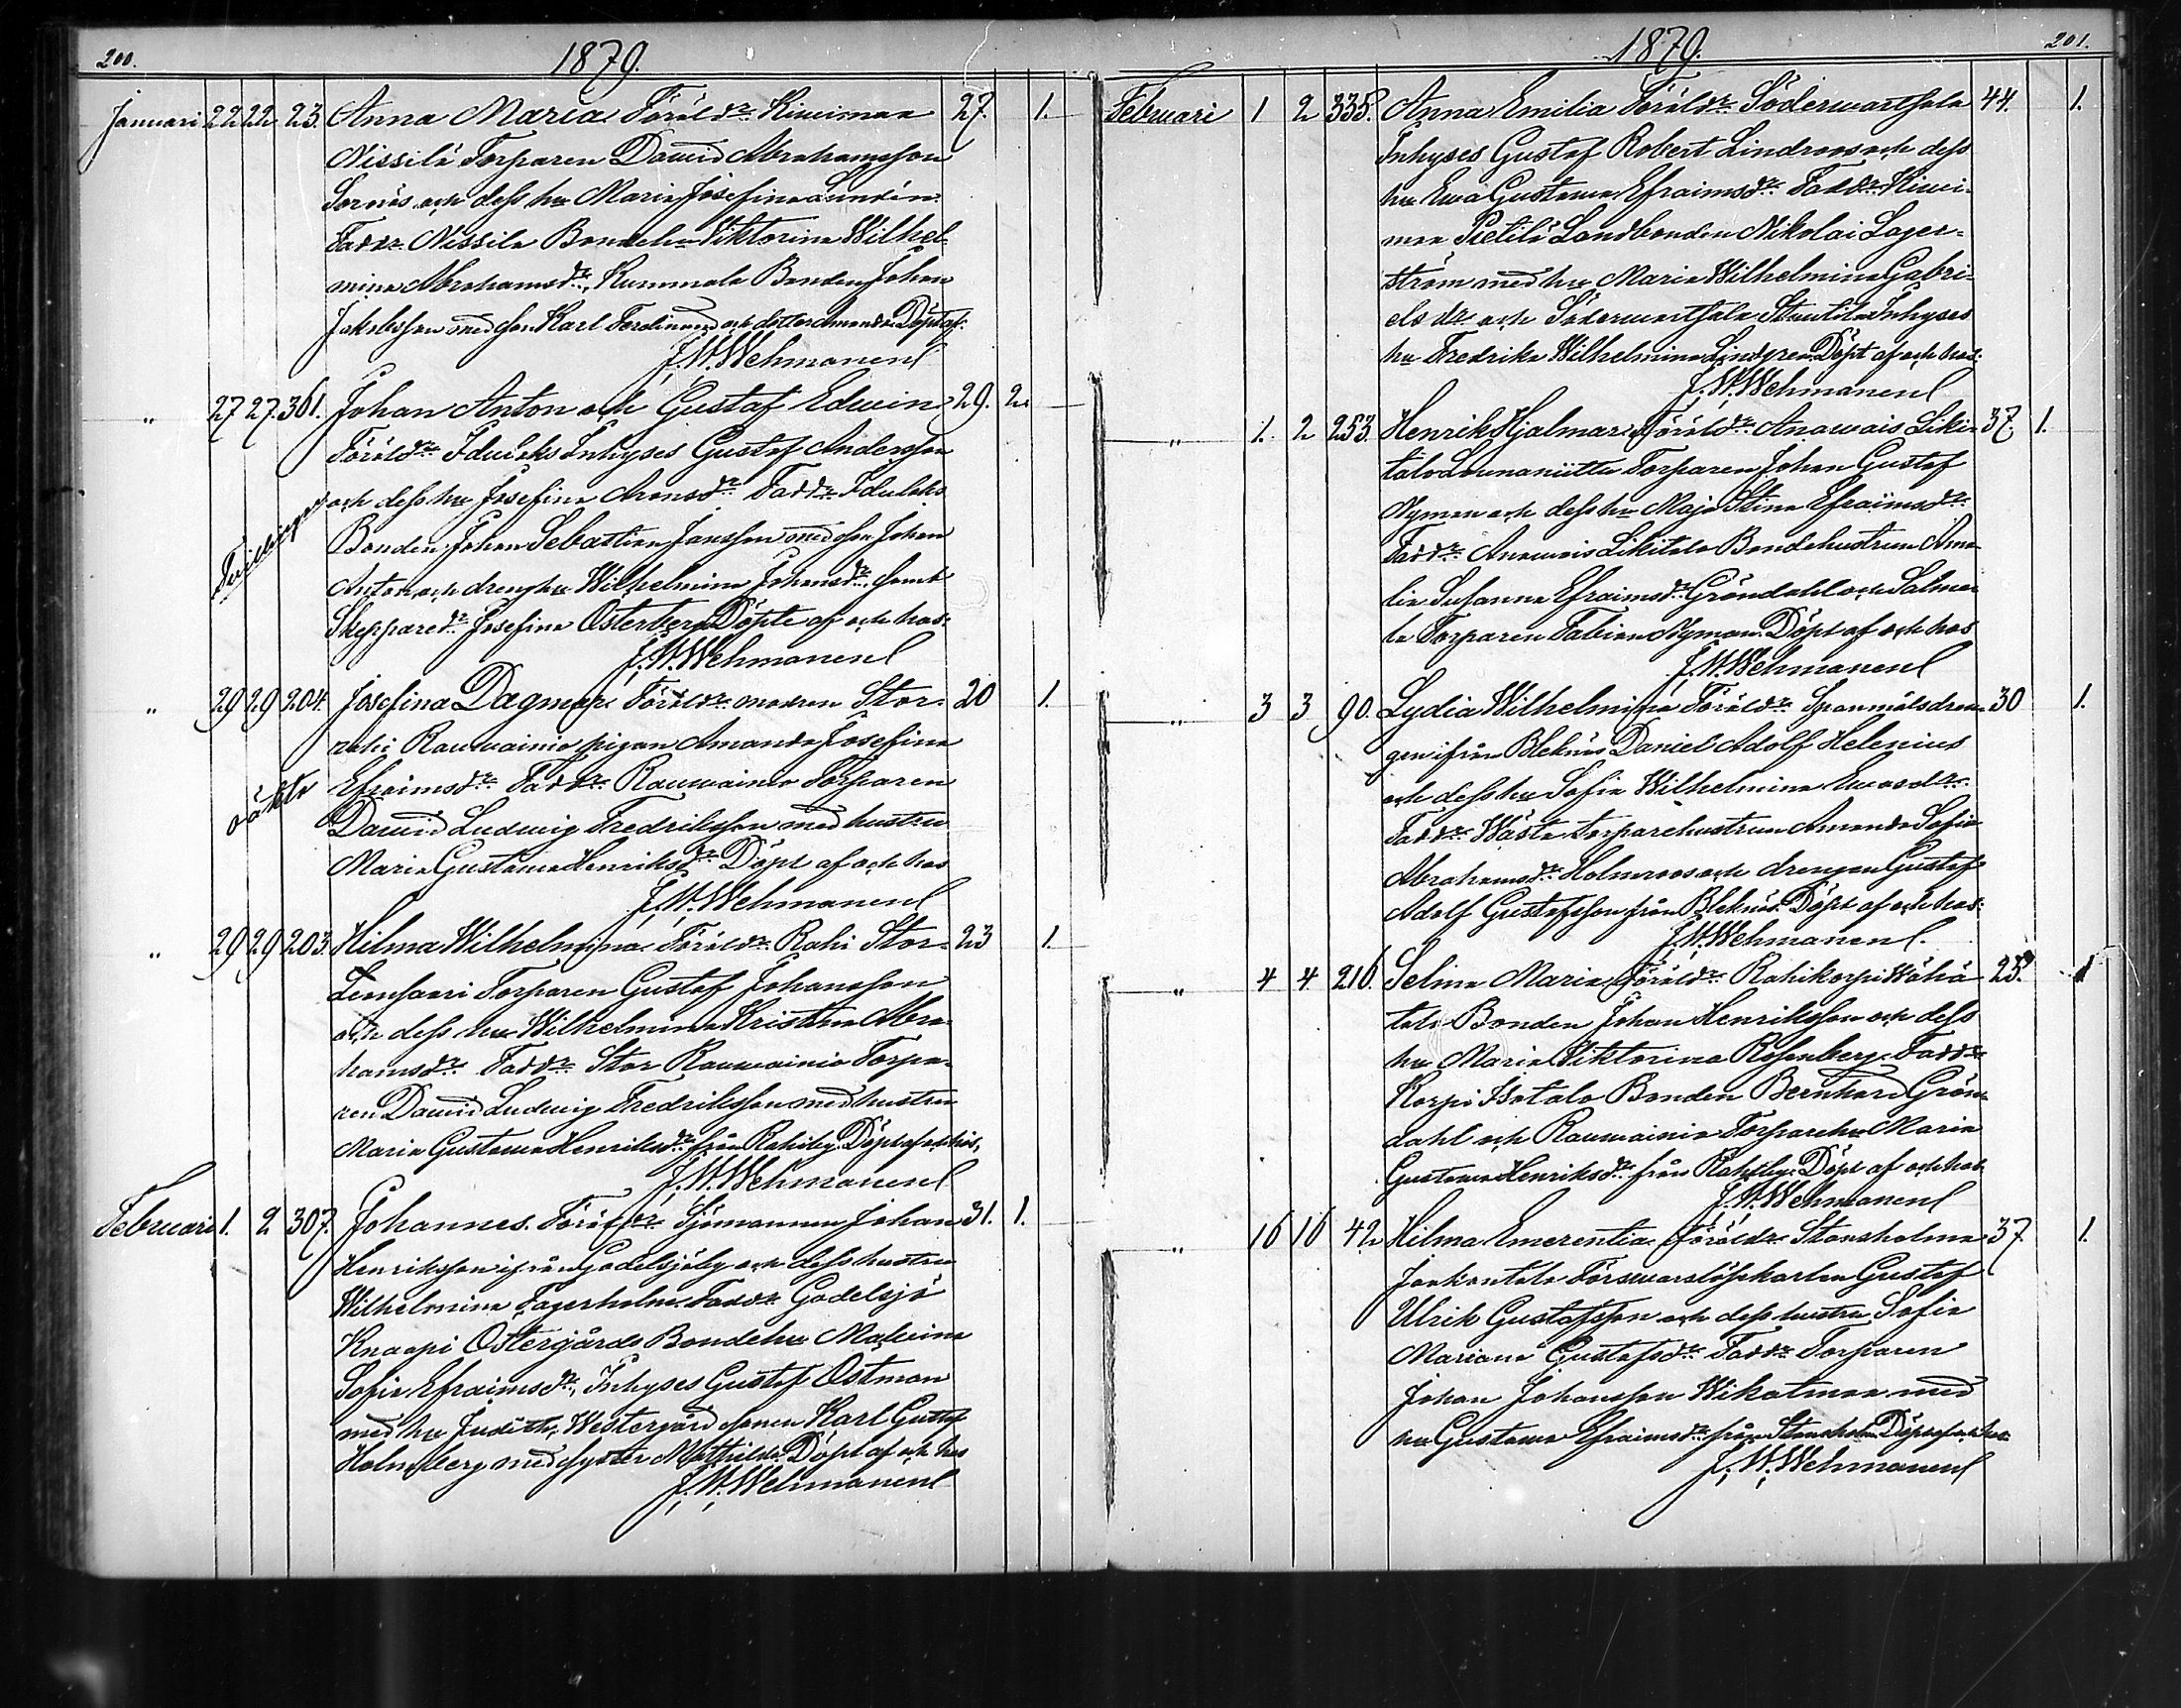 200.
1879.
Januari 22 22 23. Anna Maria Föräldr. Kiwimaa 27. 1.
Nissilä Torparen David Abrahamsson
Sornäs och dess hu Maria Josefina Lundén
Faddr. Nissila Bondehu Viktorina Wilhel-
mina Abrahamsdr., Kummala Bonden Johan
Jakobsson med son Karl Ferdinand och dotter Amanda Döpt af
J. W. Wehmanen
" 27 27. 361. Johan Anton och Gustaf Edwin 29. 2.
Föräldr. Inhyses Gustaf Andersson
Tvillingar
och dess hu Josefina Aronsdr. Faddr.
Bonden Johan Sebastian Jansson med son Johan
Anton och drenghu Wilhelmina Johansdr. samt
Skeppared. Josefina Österberg Döpte af och hos:
J. W. Wehmanen
" 29 29 204. Josefina Dagmar. Föräldr. modren Stor- 20 1.
rahi Rauwainio pigan Amanda Josefina
oäkta
Efraimsdr. Faddr. Rauwainio Torparen
David Ludwig Fredriksson med hustru
Maria Gustava Henriksdr. Döpt af och hos
J. W. Wehmanen
" 29 29 203. Hilma Wilhelmina. Föräldr. Rahi Stor- 23 1.
Lemsaari Torparen Gustaf Johansson
och dess hu Wilhelmina Kristina Abra-
hamsdr. Faddr. Stor Rauwainio Torpa-
ren David Ludwig Fredriksson med hustru
Maria Gustava Henriksdr. från Rahiby. Döpt af och hos,
J. W. Wehmanen
Februari 1. 2 307. Johannes. Föräldr. Sjömannen Johan 31. 1.
Henriksson ifrån Gadelsjöby och dess hustru
Wilhelmina Fagerholm. Faddr. Gadelsjö
Knaapi Östergårds Bondehu Malvina
Sofia Efraimsdr., Inhyses Gustaf Östman
med hu Judith, Westergård sonen Karl Gustaf
Holmberg med syster Mathilda. Döpt af och hos
J. W. Wehmanen
1879.
201.
Februari 1 2 335. Anna Emilia Föräldr. Söderwartsala 44. 1.
Inhyses Gustaf Robert Lindroos och dess
hu Ewa Gustawa Efraimsdr. Faddr. Kiwi-
maa Pietilä Landbonden Nikolai Lager-
ström med hu Maria Wilhelmina Gabri-
elsdr. och Söderwartsala Inhyses
hu Fredrika Wilhelmina Lindgren Döpt af och hos:
J. W. Wehmanen
" 1. 2 253. Henrik Hjalmar. Föräldr. Anawais Liki- 37. 1.
talo Torparen Johan Gustaf
Nyman och dess hu Maja Stina Efraimsdr.
Faddr. Anawais Likitalo Bondehustrun Ama-
lia Susanna Efraimsdr. Gröndahl och Salmi-
la Torparen Fabian Nyman. Döpt af och hos
J. W. Wehmanen
" 3 3 90. Lydia Wilhelmina Föräldr. Spanmålsdren- 30 1.
gen ifrån Bleknäs Daniel Adolf Helenius
och dess hu Sofia Wilhelmina Ewasdr.
Faddr. Wästa torparehustrun Amanda Sofia
Abrahamsdr. Holmroos och drengen Gustaf
Adolf Gustafsson från Bleknäs. Döpt af och hos:
J. W. Wehmanen.
" 4 4 216. Selma Maria. Föräldr. Rahikorpi Wähä 25. 1
talo Bonden Johan Henriksson och dess
hu Maria Viktorina Rosenberg. Faddr.
Korpi Isotalo Bonden Bernhard Grön-
dahl och Rauwainio Torparehu Maria
Gustawa Henriksdr. från Rahiby. Döpt af och hos
J. W. Wehmanen
" 16 16 42 Hilma Emerentia. Föräldr. Stansholma 37. 1.
Jaakontalo Förswarslösekarlen Gustaf
Ulrik Gustafsson och dess hustru Sofia
Mariana Gustafsdr. Faddr. Torparen
Johan Johansson Wikatmaa med
hu Gustawa Efraimsdr. från Stansholm Döpt af och hos
J. W. Wehmanen